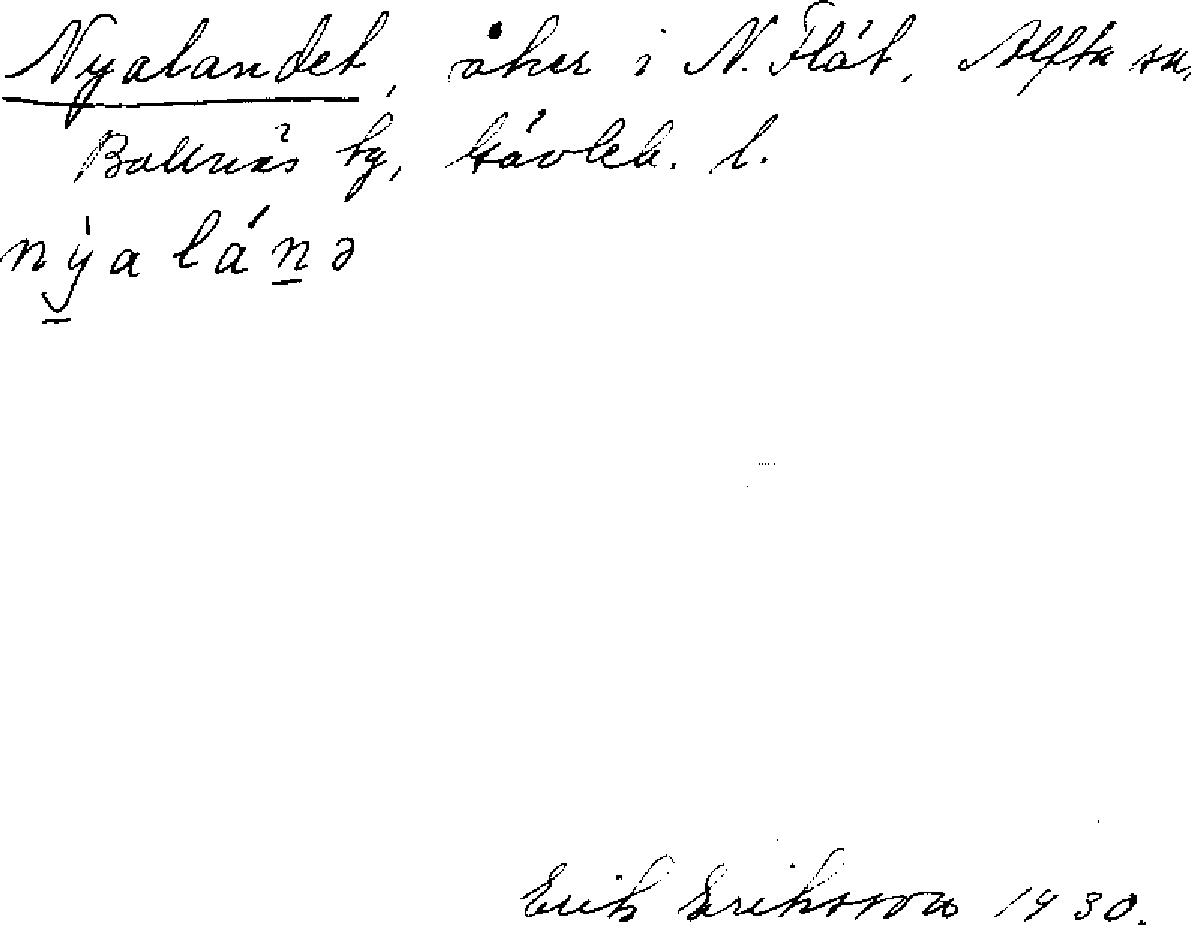 Nyalandet, åker i N. Flät, Alfta sn,
Bollnäs hg, Gävleb. l.
nỳa lán̲ə
Erik Eriksson 1930.